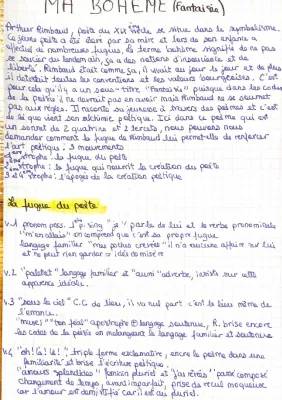 MA BOHÈME (Fantaisie)
Arthur Rimbaud, poète du XIX siècle se situe dans le symbolisme.
Ce jeune poète a été élevé par sa mère et lors de son enfance a
effectué de nombreuses fugues. Le terme bohème signifie de ne pas
se soucier du lendemain, ça a des notions d'insouciance et de
liberté. Rimbaud était comme ça, il vivait au jour le jour et de plus
il détestait les conventions et les valeurs bourgeoises. C'est
pour cela qu'il y a un sous-titre "Fantaisie" puisque dans les codes
de la poésie, ne devrait pas en avoir mais Rimbaud ne se soumet
pas aux règles. Il raconte sa jeunesse à travers des poèmes et c'est
de là que vient son alchimie poétique. Ici dans ce poème qui est
un sonnet de 2 quatrains et 2 tercets, nous pouvons nous
demander comment la fugue de Rimbaud lui permet-elle de renforcer
l'art poétique : 3 mouvements
strophe : la fugue du poète
strophe : la fugue qui nourrit la création du poète
3 et 4 strophe : l'apogée de la création poétique
La fugue du poète
v.1 pronom pers. 1 sing "je" parle de lui et le verbe pronominale
"m'en allais" on comprend que c'est sa propre fugue
langage familier "mes poches crevées" il n'a aucune affaire sur lui
et ne peut rien garder = idée de misère
v.2 "paletot" langage familier et "aussi" adverbe, insiste sur cette
apparence idéale.
v.3 "sous le ciel" C.C de lieu, il va nul part c'est le lieu même de
l'errance.
"muse" "ton féal" apostrophe langage soutenue, R. brise encore
les codes de la poésie en mélangeant le langage familier et soutenue
v.4 "oh! là! là!", triple forme exclamative, encre le poème dans une
familiarité et brise l'écriture poétique.
"amours splendides" féminin pluriel et "j'ai rêvées" passé composé
changement de temps, avant imparfait, prise de recul moqueuse
car l'amour est démystifié car il est au pluriel.